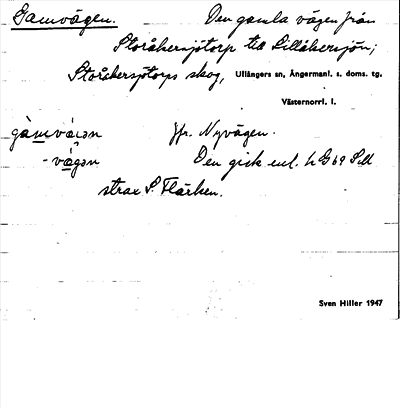 Gamvägen. Den gamla vägen från
Storåkersjötorp till Lillåkersjön;
Storåkersjötorps skog, Ullångers sn, Ångermanl. s. doms. tg.
Västernorrl. l.
gàmvä́gən jfr. Nyvägen.
-vä̀gən Den gick enl. LG69 till
strax S. Flärken.
Sven Hiller 1947